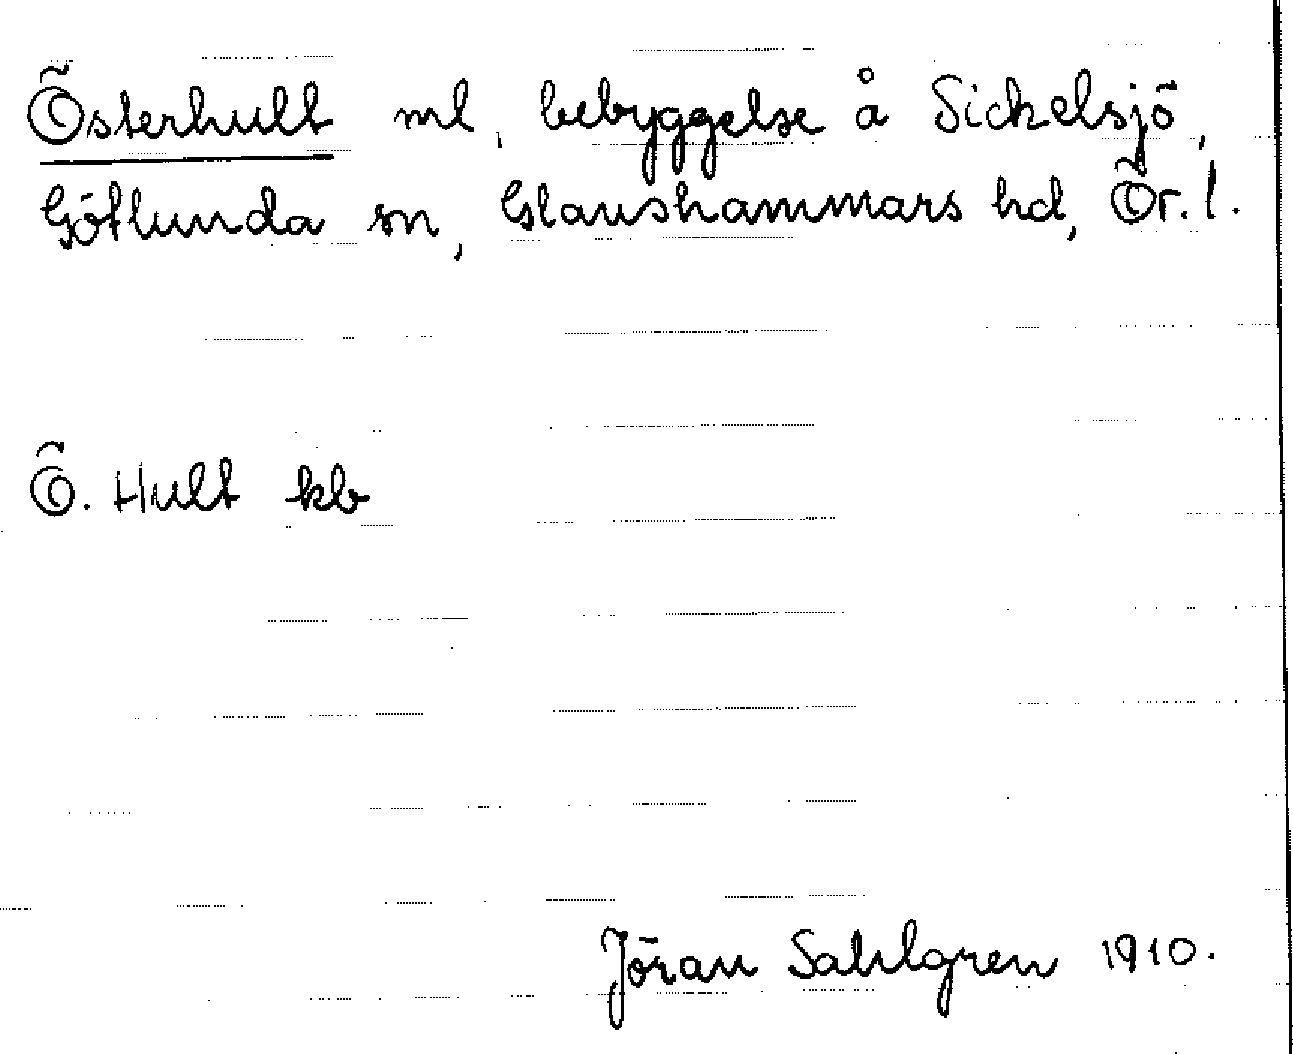 Österhult ml, bebyggelse å Sickelsjö,
Götlunda sn, Glanshammars hd, Ör. l.
Ö. Hult kb
Jöran Sahlgren 1910.